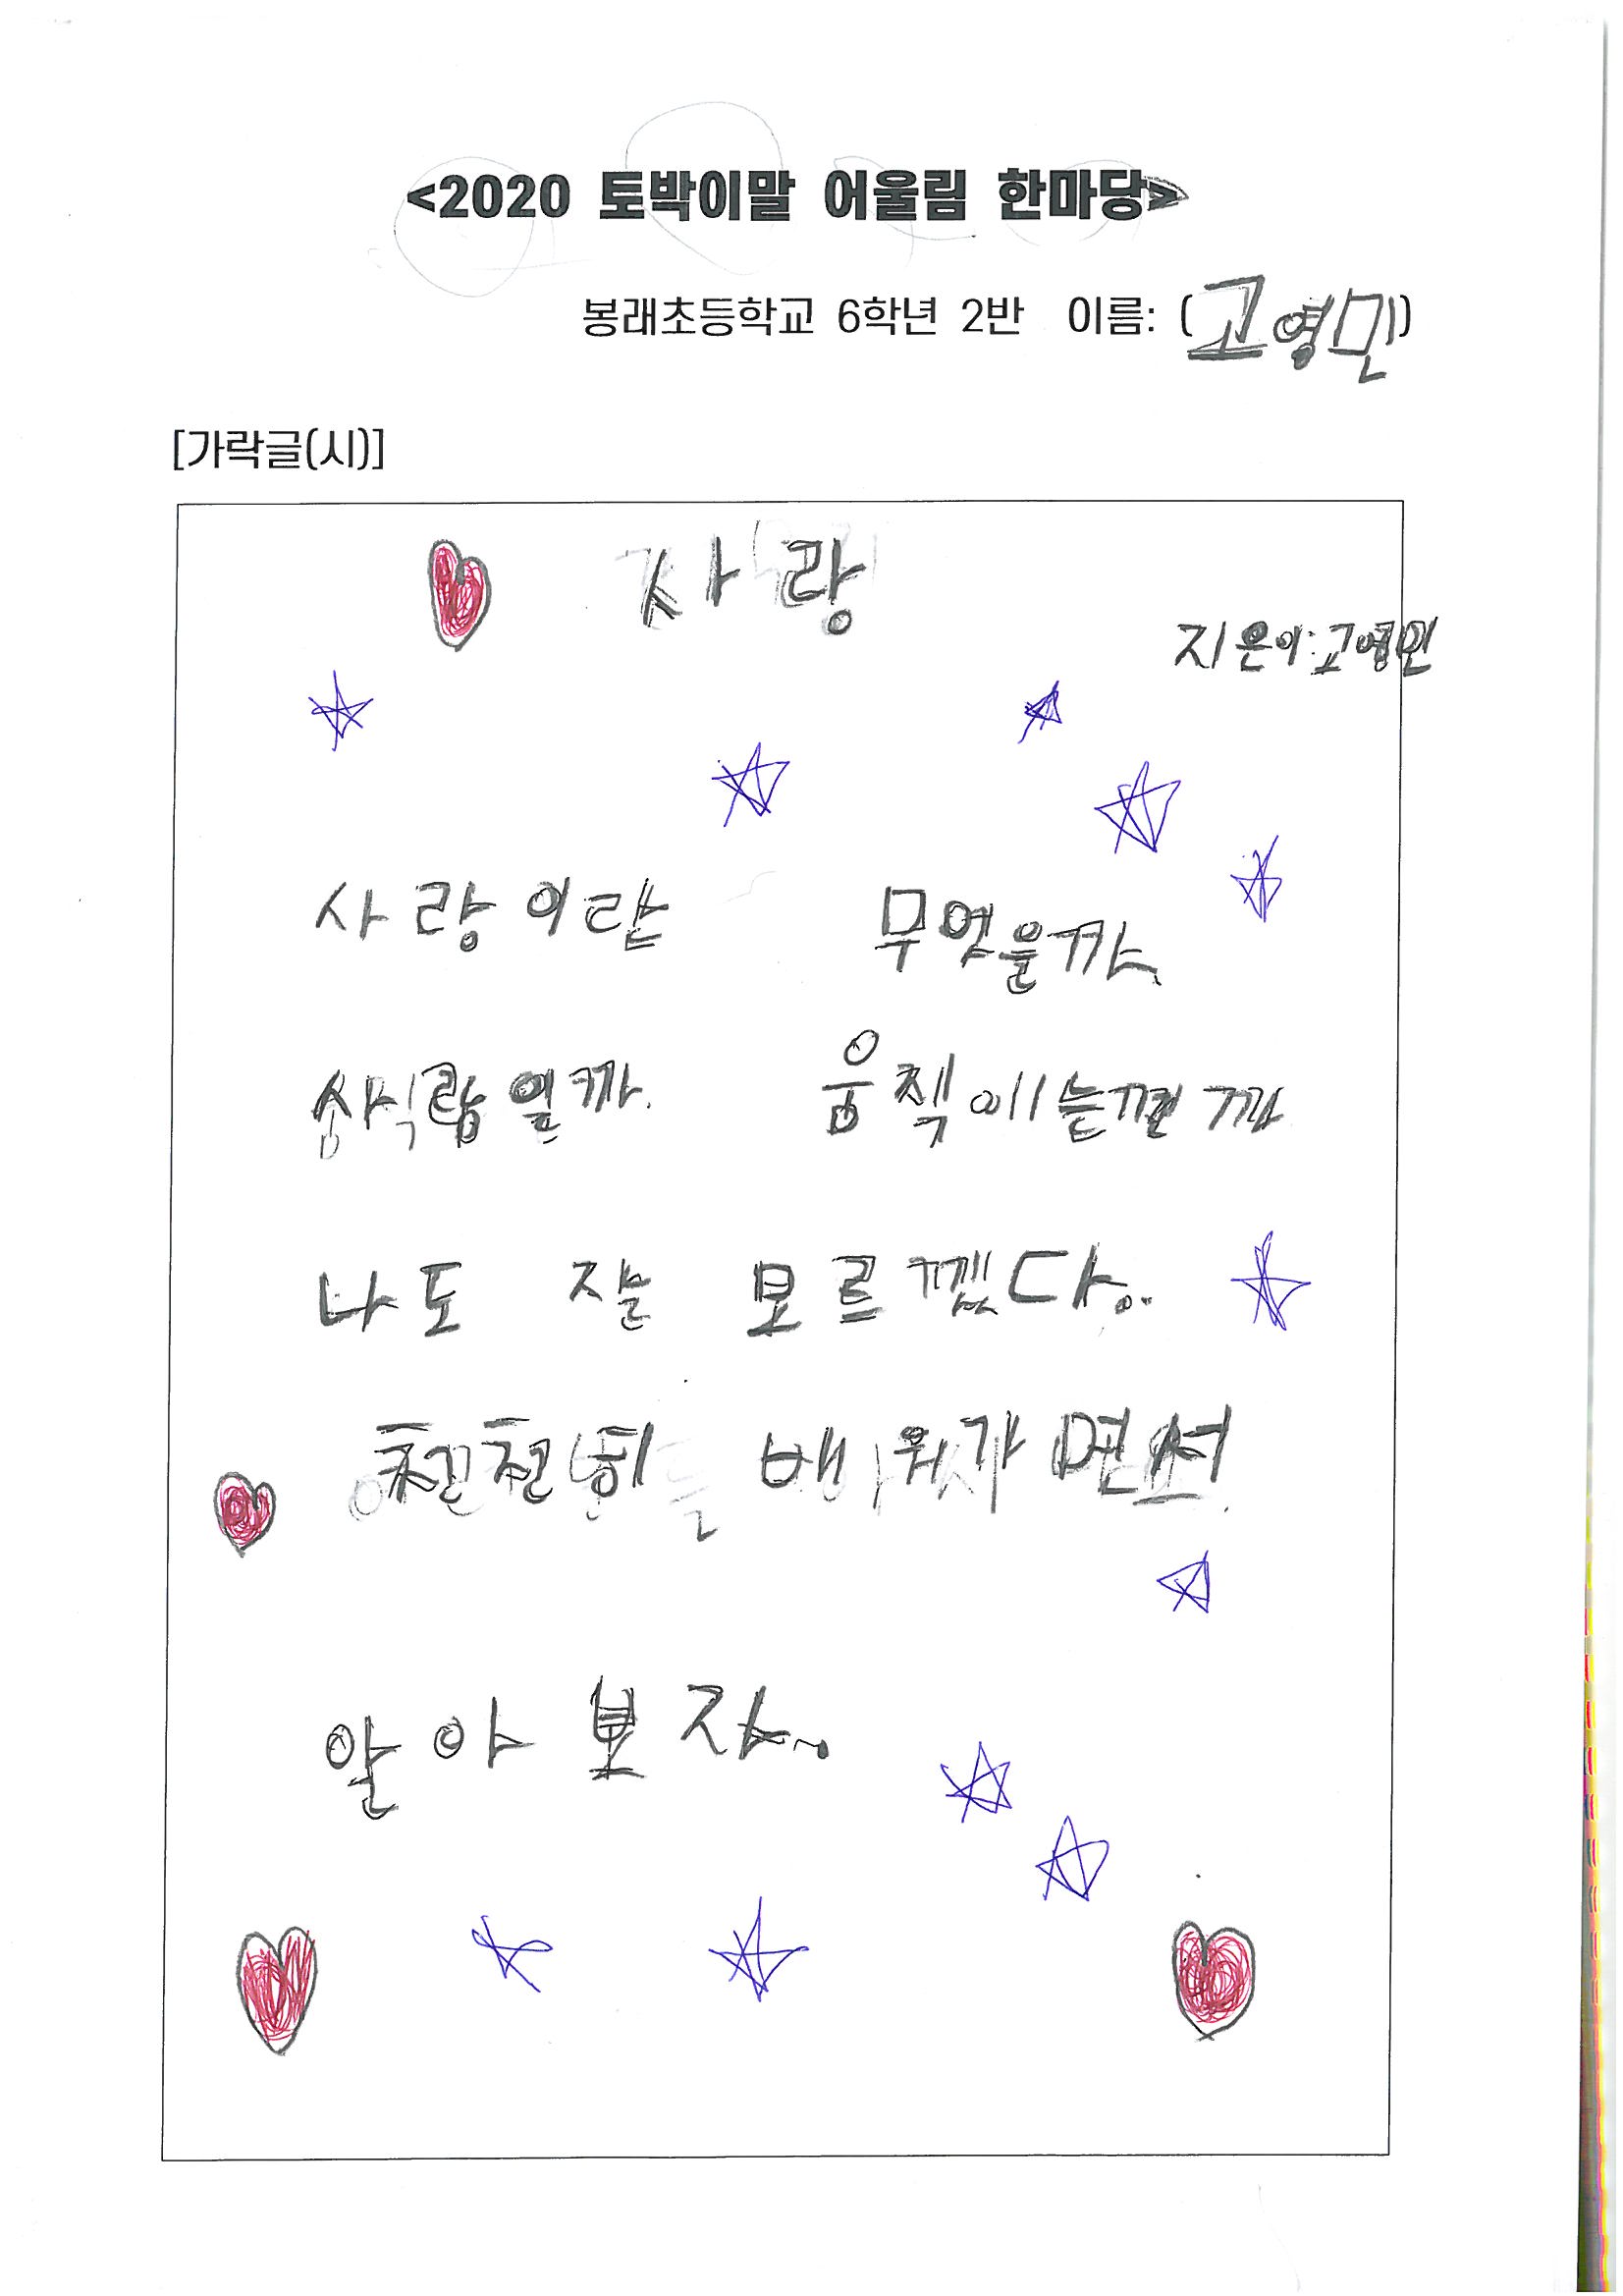 <2020 토박이말 어울림 한마당>
봉래초등학교 6학년 2반 이름: (고영민)
[가락글(시)]
사랑
지은이: 고영민
사랑이란 무엇을까
일까. 움직
나도 잘 모르겠다.
천천히 배워가면서
알아보자.